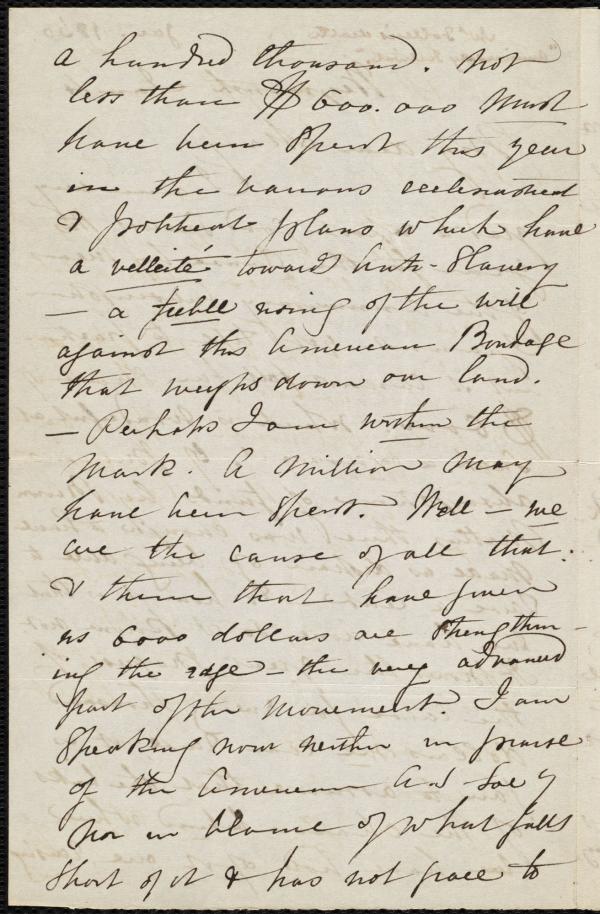 a hundred thousand. Not
less than $600.000 must
have been spent this year
in the various ecclesiastical
& political plans which have
a velleité towards Anti-Slavery
— a feeble rising of the will
against this American Bondage
that weighs down our land.
— Perhaps I am within the
mark. A million may
have been spent. Well — we
are the cause of all that:
& them that have given
us 6000 dollars are strengthen-
ing the edge — the very advanced
part of the movement. I am
speaking now neither in praise
of the American A. S. Soc y
nor in blame of what falls
short of it & has not grace to